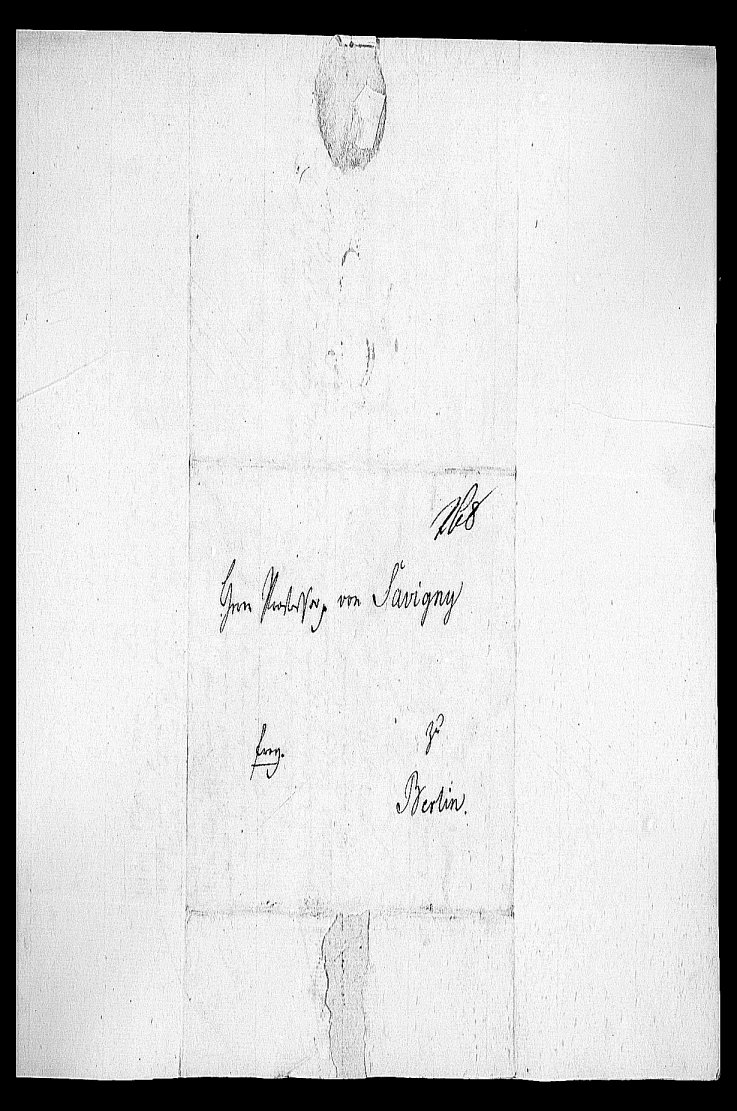 Herrn Professor von Savigny
frey.
zu
Berlin.